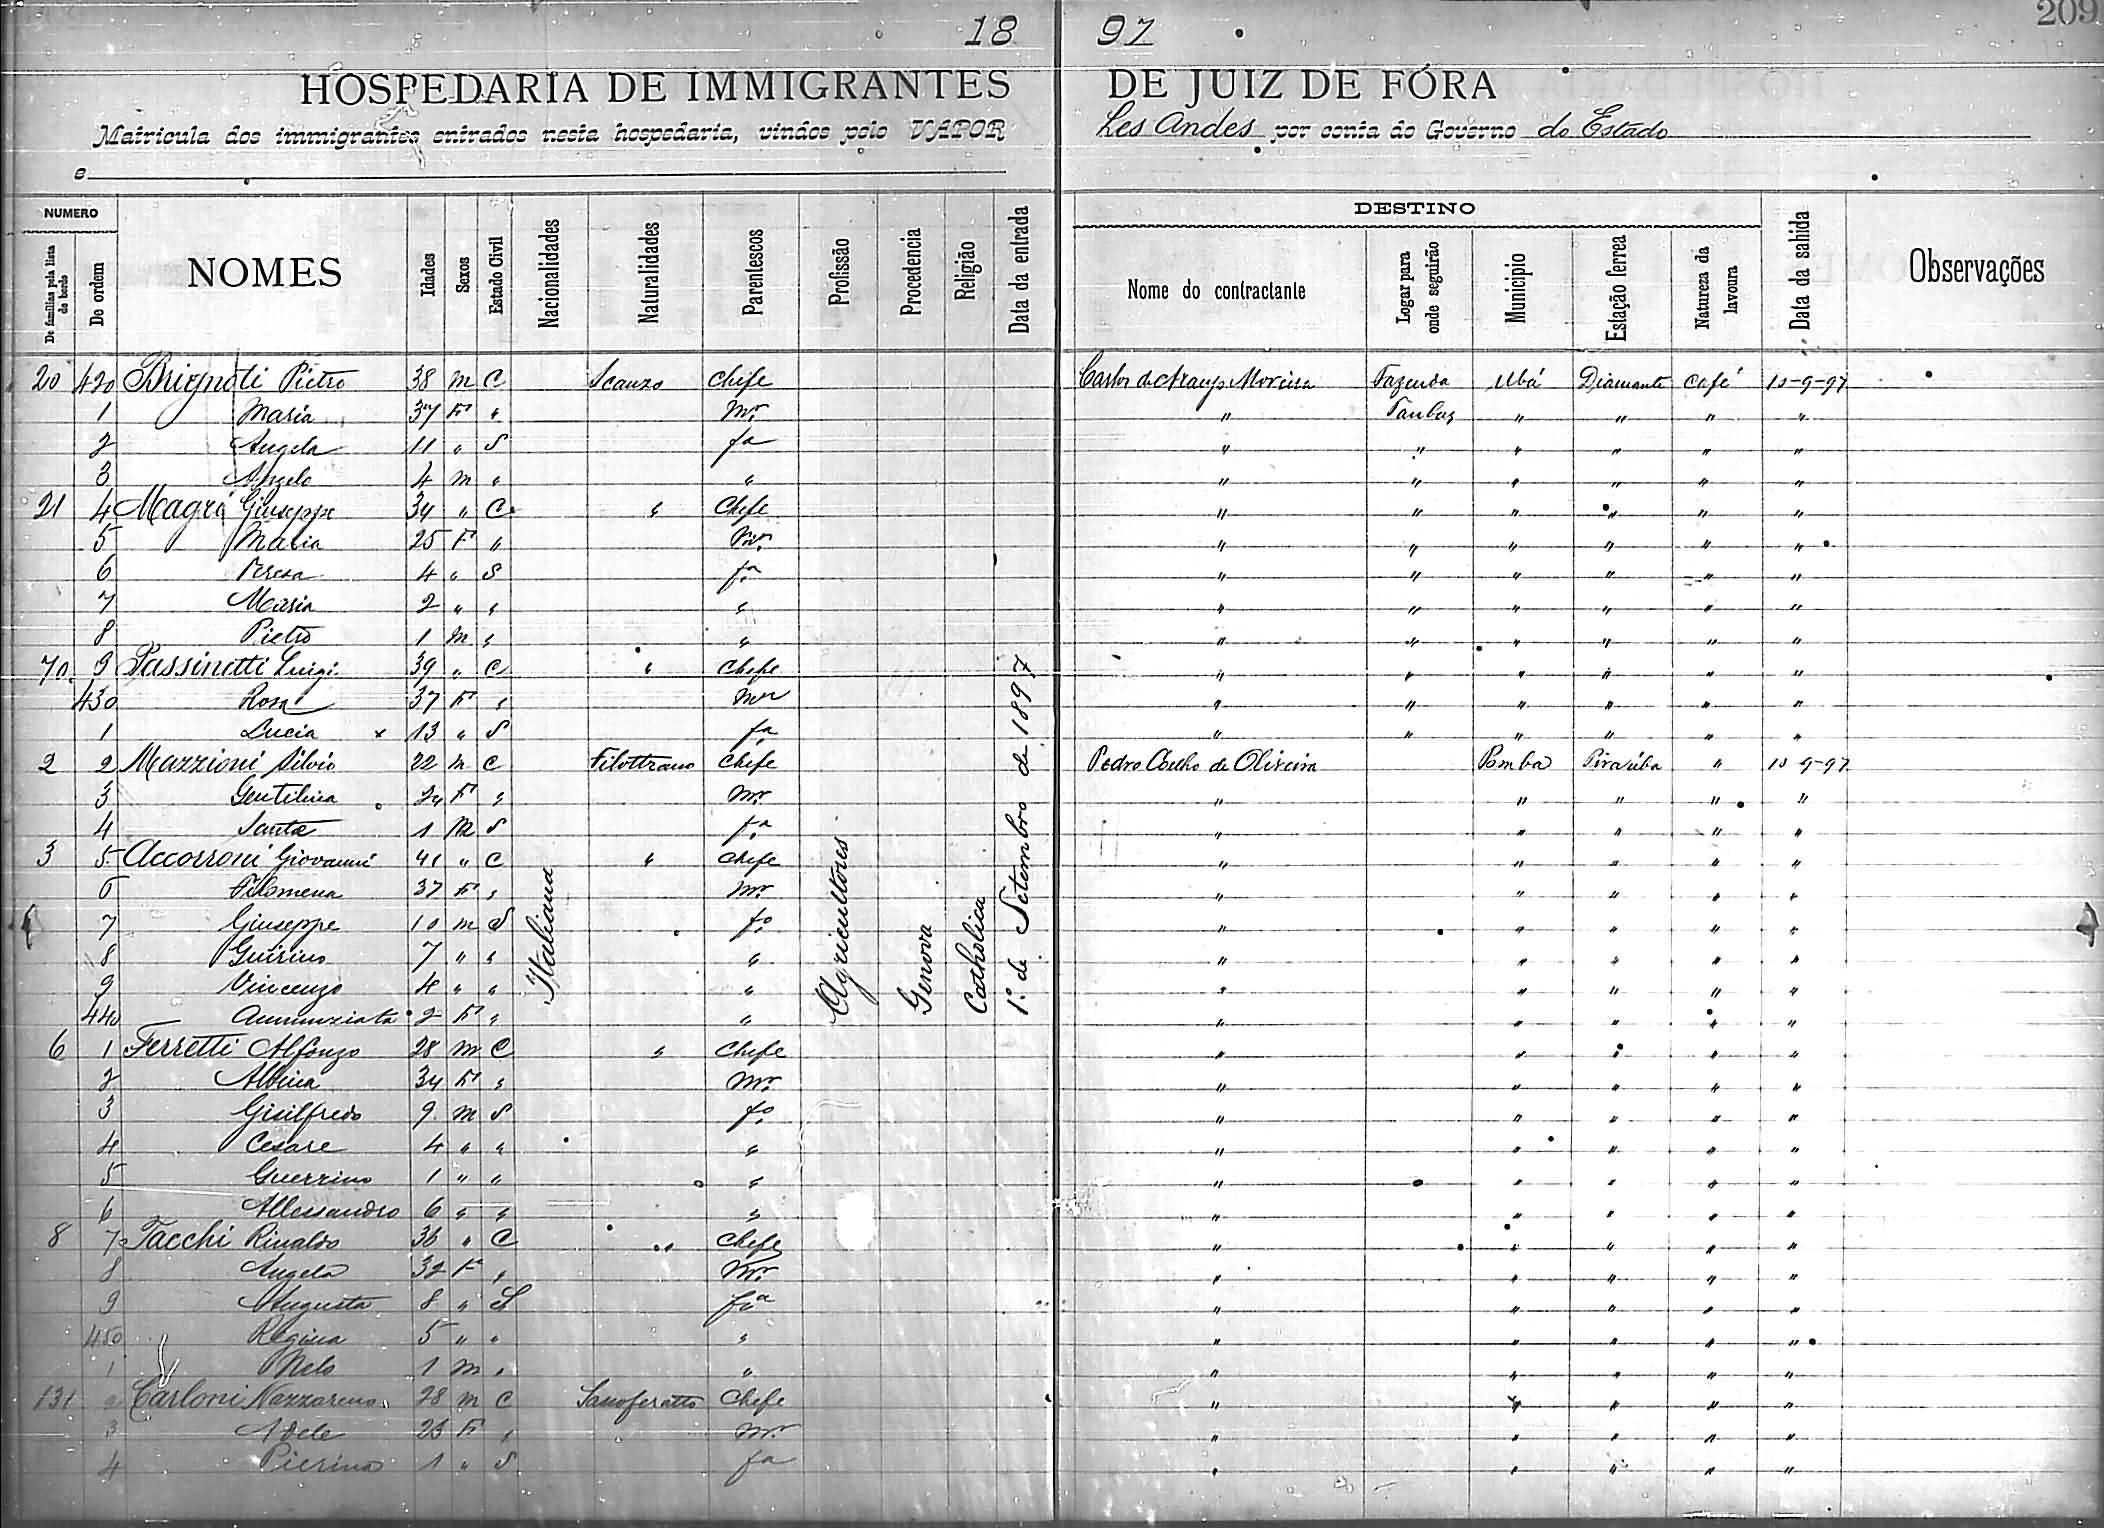 209
18 97
HOSPEDARIA DE IMMIGRANTES DE JUIZ DE FÓRA
Matricula dos immigrantes entrados nesta hospedaria, vindos pelo VAPOR Les Andes por conta do Governo do Estado
e
NUMERO
De familias pela lista de bordo
De ordem
NOMES
Idades
Sexos
Estado Civil
Nacionalidades
Naturalidades
Parentescos
Profissão
Procedencia
Religião
Data da entrada
DESTINO
Nome do contractante
Logar para onde seguirão
Municipio
Estação ferrea
Natureza da lavoura
Data da sahida
Observações
20 420 Brignoli Pietro 38 m C Scanzo Chefe Carlos de Araujo Moreira Fazenda Ubá Diamante Café 10-9-97
1 Maria 37 F " Mr. " " " " "
2 Angela 11 " S fa " " " " " "
3 Angelo 4 m " " " " " " " "
21 4 Magri Giuseppe 34 " C " Chefe " " " " " "
5 Maria 25 F " Mr. " " " " " "
6 Teresa 4 " S fa " " " " " "
7 Maria 2 " " " " " " " " "
8 Pietro 1 m " " " " " " " "
70 9 Passinetti Luigi 39 " C " Chefe " " " " " "
430 Rosa 37 F " Mr " " " " " "
1 Lucia x 13 " S fa " " " " " "
2 2 Mazzioni Silvio 22 m C Filottrano Chefe Pedro Coelho de Oliveira Pomba Piraúba " 10-9-97
3 Gentilina 24 F " Mr. " " " " "
4 Santa 1 M S fa " " " " "
3 5 Accorroni Giovanni 41 " C " Chefe " " " " "
6 Filomena 37 F " Mr. " " " " "
7 Giuseppe 10 m S fo " " " " "
8 Guirino 7 " " " " " " " "
9 Vincenzo 4 " " " " " " " "
440 Annunziata 2 F " " " " " " "
6 1 Ferretti Alfonzo 28 m C " Chefe " " " " "
2 Albina 34 F " Mr. " " " " "
3 Gisilfredo 9 m S fo " " " " "
4 Cesare 4 " " " " " " " "
5 Guerrino 1 " " " " " " " "
6 Allessandro 6 " " " " " " " "
8 7 Tacchi Rinaldo 36 " C " Chefe " " " " "
8 Angela 32 F " Mr. " " " " "
9 Augusta 8 " S fa " " " " "
450 Regina 5 " " " " " " " "
1 Nelo 1 m " " " " " " "
131 2 Carloni Nazzareno 28 m C Sassoferatto Chefe " " " " "
3 Adele 23 F " Mr. " " " " "
4 Pierina 1 " S fa " " " " "
Italiana
Agricultores
Genova
Catholica
1º. de Setembro de 1897